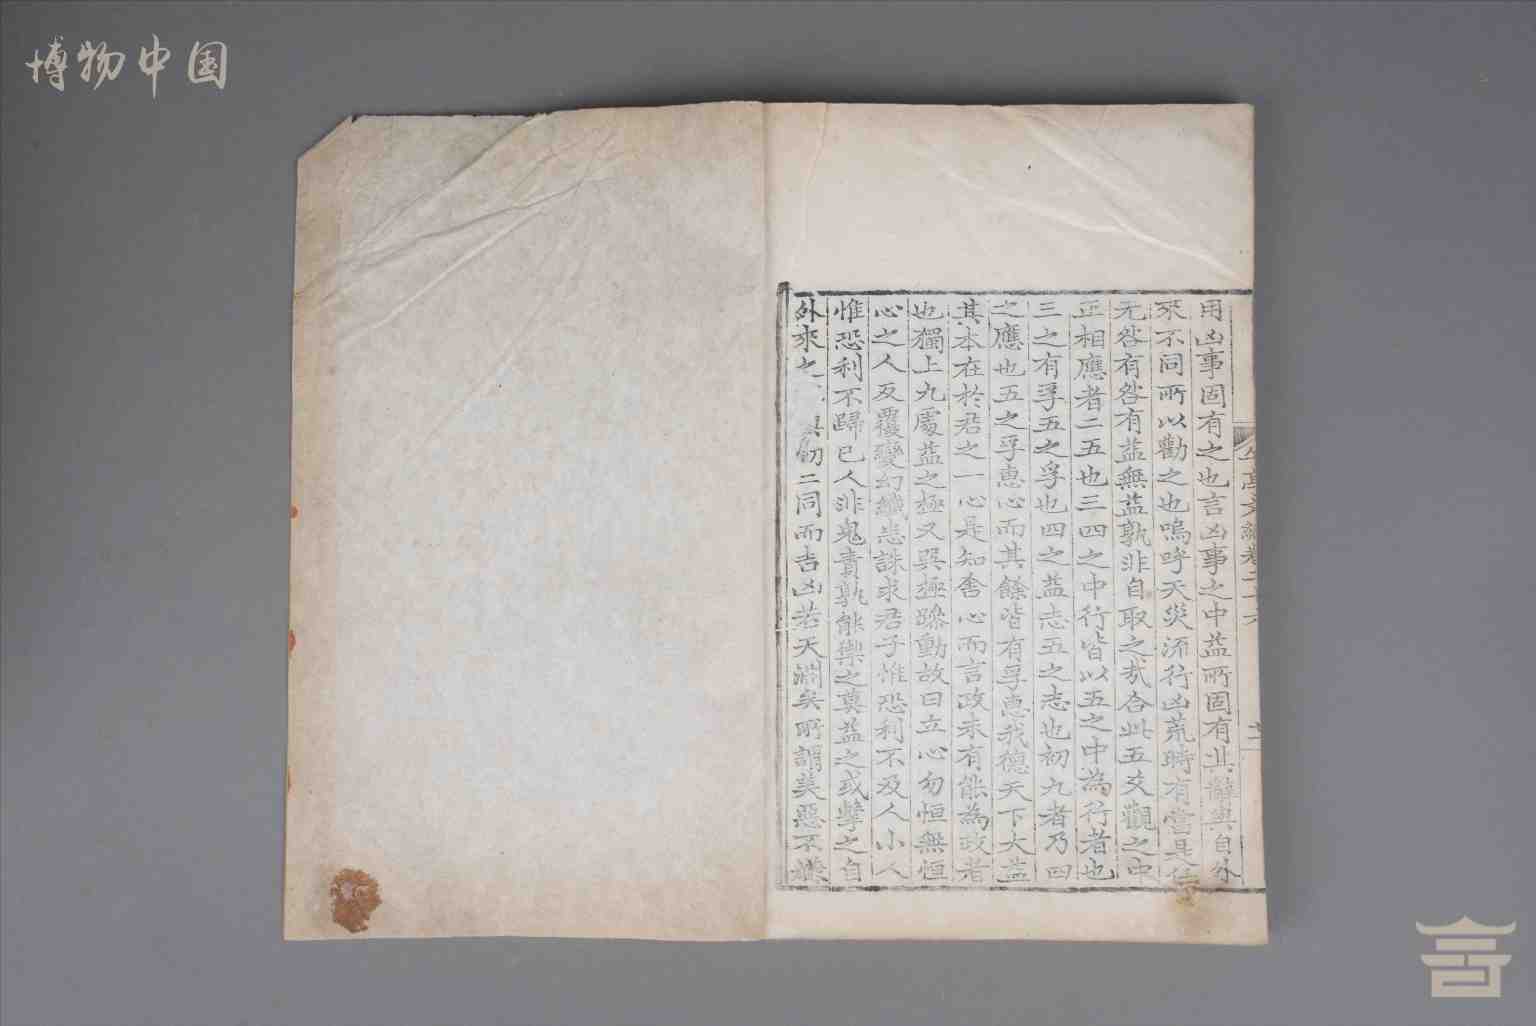 博物中国
用凶事固有之也言凶事之中益所固有其辭與自外
來不同所以勸之也嗚呼天災流行凶荒時有當是
无咎有咎有益無益孰非自取之哉合此五爻觀之中
正相應者二五也三四之中行皆以五之中為行者也
三之有孚五之孚也四之益志五之志也初九者乃四
之應也五之孚惠心而其餘皆有孚惠我德天下大益
其本在於君之一心是知舍心而言政未有能為政者
也獨上九處益之極又巽極躁動故曰立心勿恒無恒
心之人反覆變幻纖恶誅求君子惟恐利不及人小人
惟恐利不歸已人非鬼責孰能禦之莫益之或擊之自
外來之與初二同而吉凶若天淵矣所謂美惡不嫌
亭文編卷二十六
十一